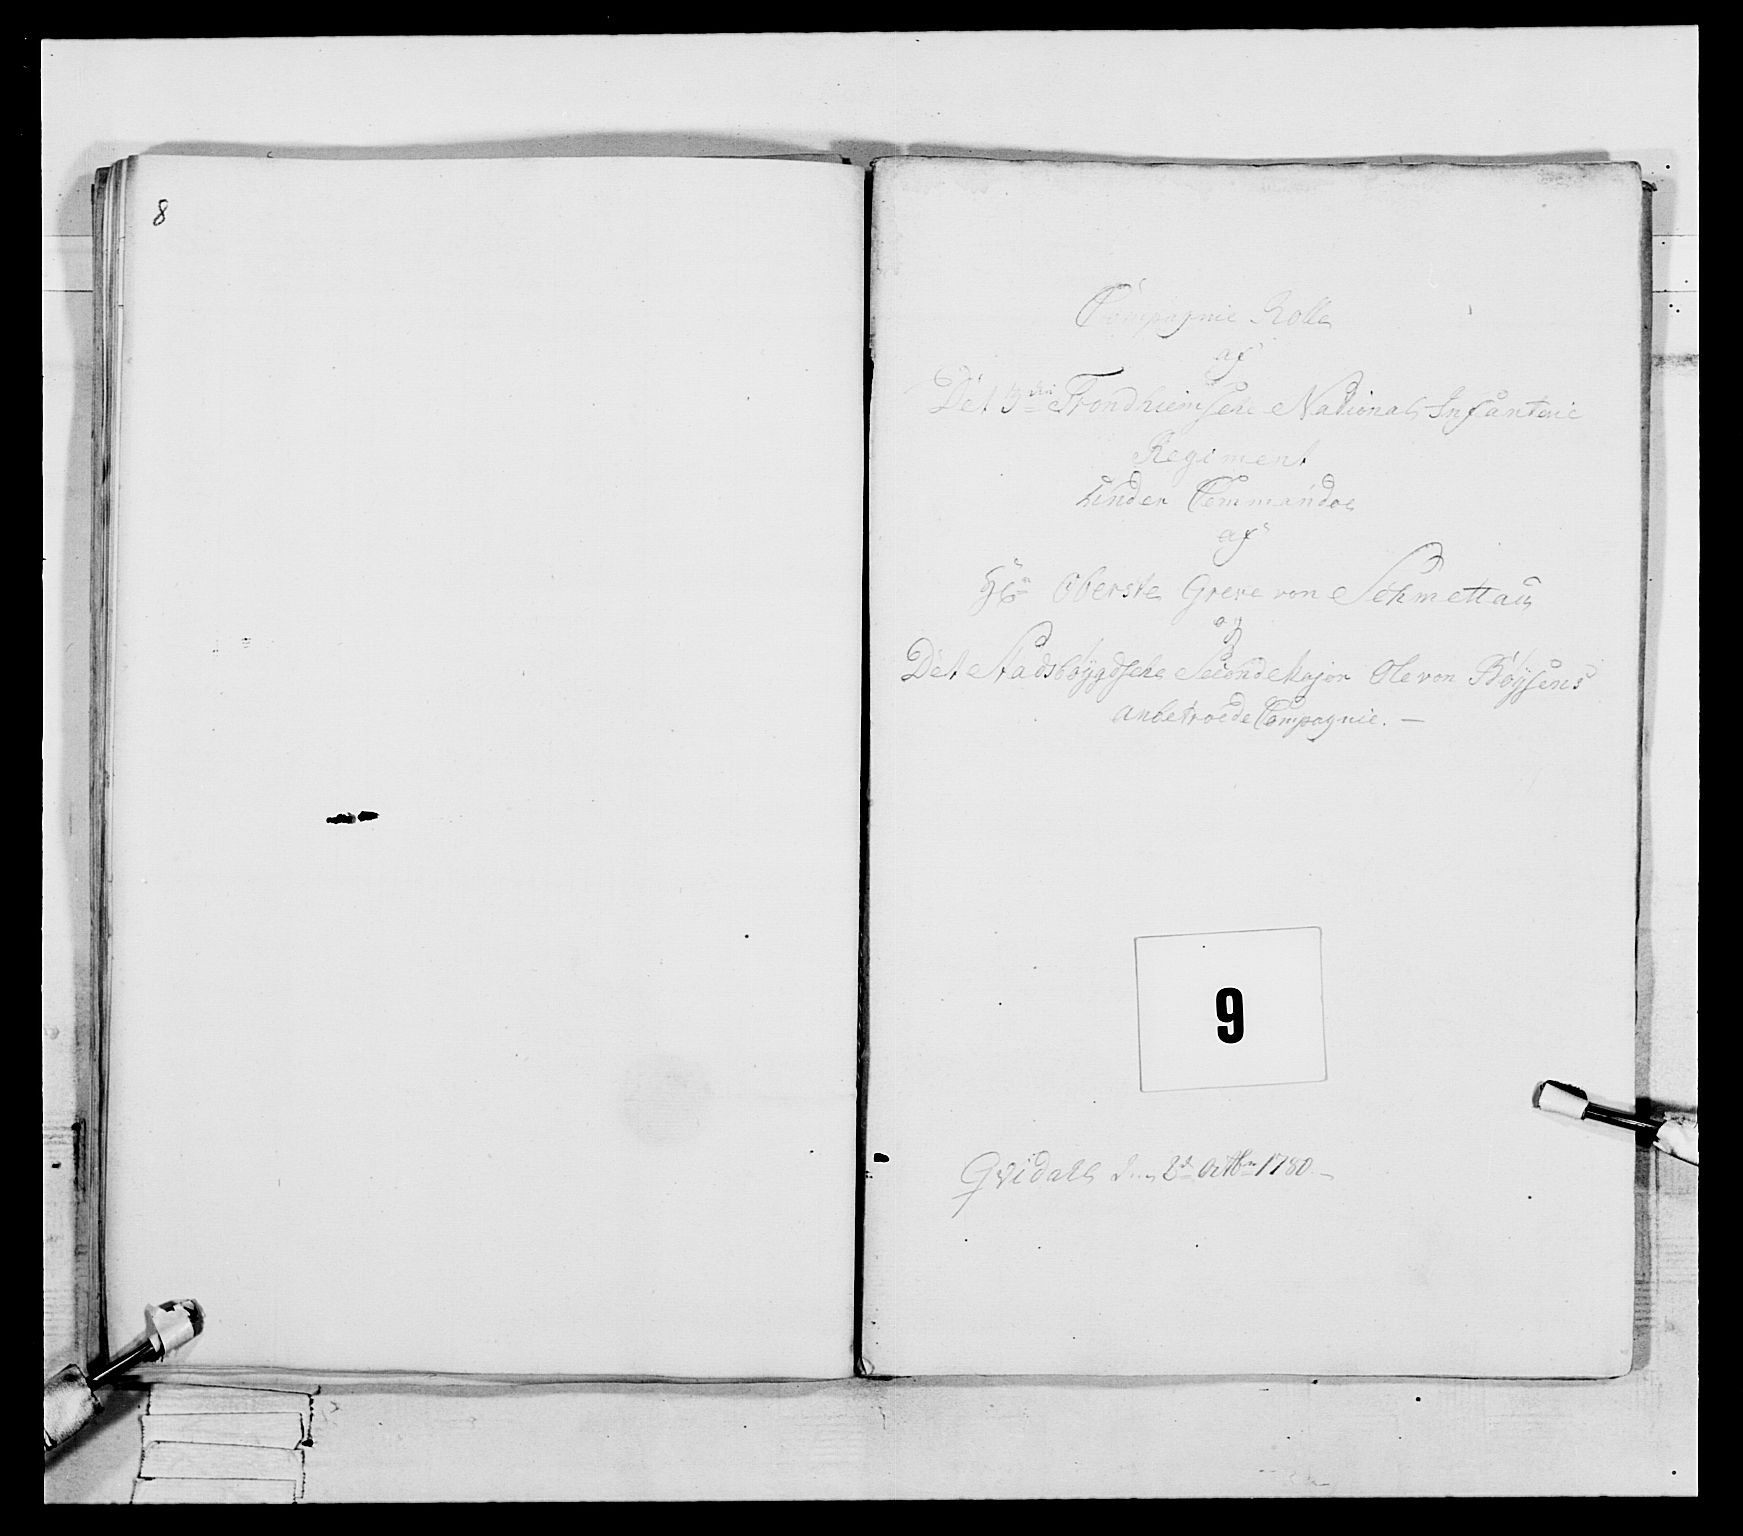 8
Compagnie Rolle
af
Det 3die Trondhiemsche National Infanterie
Regiment
under Commandoe
af
Hr Oberste Greve von Schmettau
og
Det Stadsbøygdsche Second Major Ole von Bøysens
anbetroede Compagnie. —
9
Qvidahl 2d Octbr 1780 —